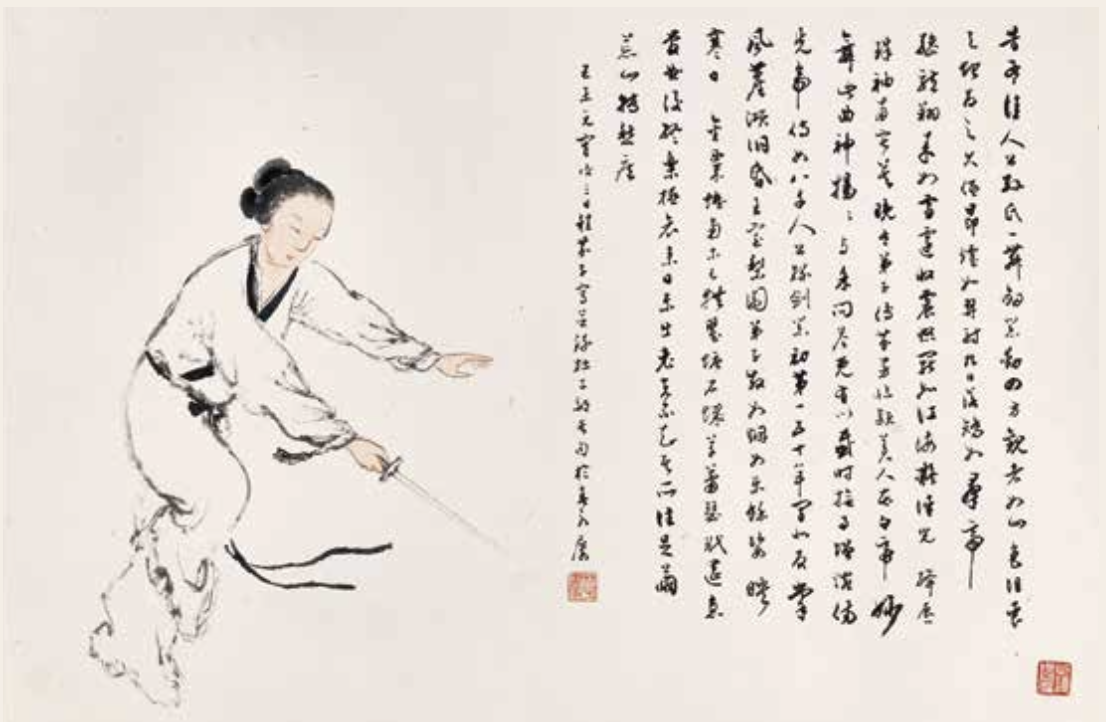 昔有佳人公孫氏一舞劍器動四方觀者如山色沮喪
天地為之久低昂㸌如羿射九日落矯如羣帝
驂龍翔來如雷霆收震怒罷如江海凝清光絳唇
珠袖兩寂寞晚有弟子傳芬芳臨潁美人在白帝妙
舞此曲神揚〻與余問答既有以感時撫事增惋傷
先帝侍女八千人公孫劍器初第一五十年間似反掌
風塵澒洞昏王室梨園弟子散如烟女樂餘姿映
寒日金粟堆南木已拱瞿塘石城草蕭瑟玳筵急
管曲復終樂極哀來月東出老夫不知其所往足繭
荒山轉愁疾
元宵後三日程芥子寫並錄杜子